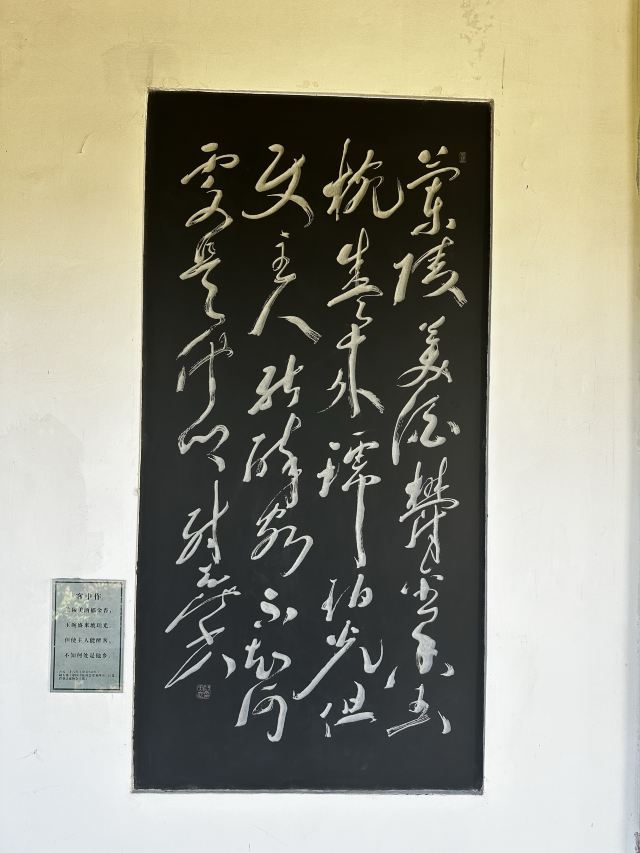 蘭陵美酒欝金香玉
椀盛来琥珀光但
使主人能醉客不知何
處是他鄉
客中作
兰陵美酒郁金香，
玉碗盛来琥珀光。
但使主人能醉客，
不知何处是他乡。